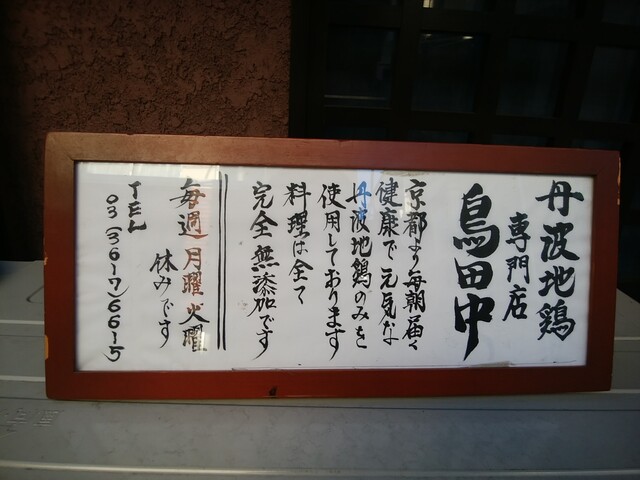 丹波地鶏
専門店
鳥田中
京都より毎朝届く
健康で元気な
丹波地鶏のみを
使用しております
料理は全て
完全無添加です
毎週月曜火曜
休みです
TEL
03(3617)6615